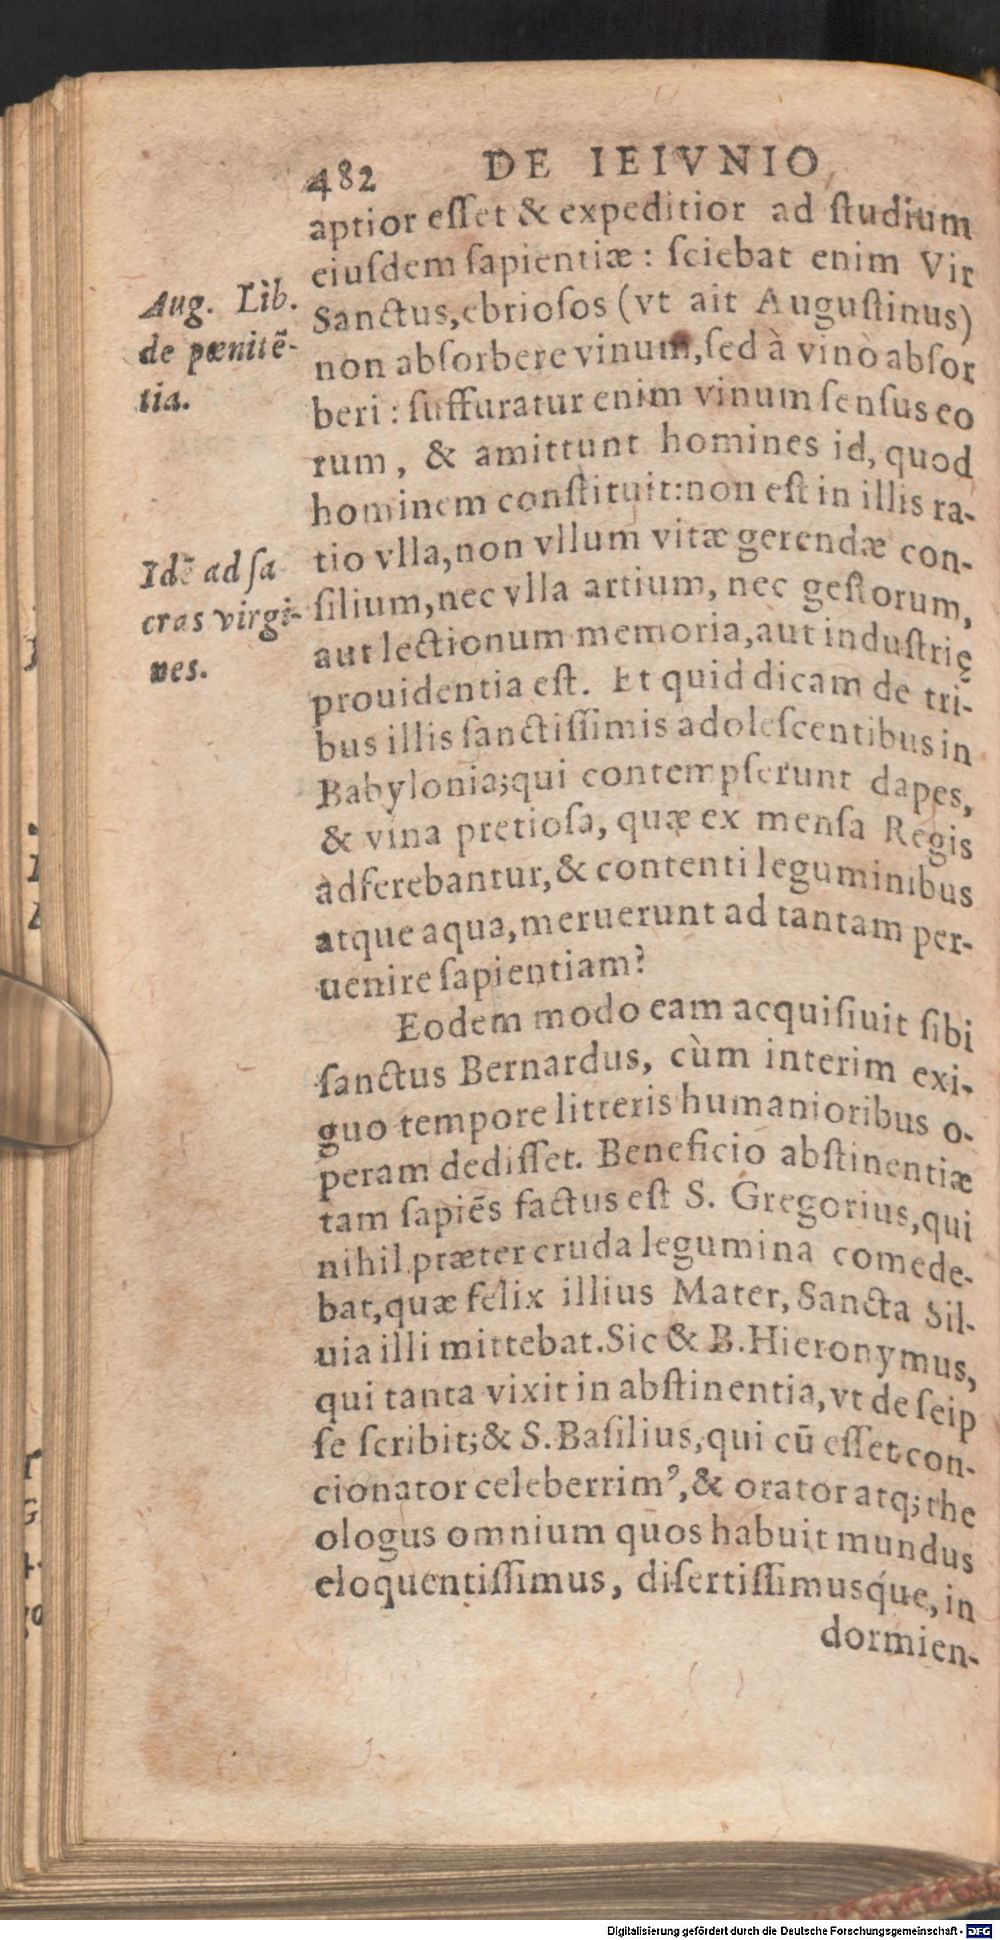 482 DE IEIVNIO
aptior eſſet & expeditior ad ſtudium
eiuſdem ſapientiæ: ſciebat enim Vir
Sanctus, ebrioſos (vt ait Auguſtinus)
Aug. Lib.
de pœnitē-
tia.
non abſorbere vinum, ſed à vino abſor
beri: ſuffuratur enim vinum ſenſus eo
rum, & amittunt homines id, quod
hominem conſtituit: non eſt in illis ra-
tio vlla, non vllum vitæ gerendæ con-
Idē ad ſa
cras virgi-
nes.
ſilium, nec vlla artium, nec geſtorum,
aut lectionum memoria, aut induſtrię
prouidentia eſt. Et quid dicam de tri-
bus illis ſanctiſſimis adoleſcentibus in
Babylonia; qui contempſerunt dapes,
& vina pretioſa, quæ ex menſa Regis
adferebantur, & contenti leguminibus
atque aqua, meruerunt ad tantam per-
uenire ſapientiam?
Eodem modo eam acquiſiuit ſibi
ſanctus Bernardus, cùm interim exi-
guo tempore litteris humanioribus o-
peram dediſſet. Beneficio abſtinentiæ
tam ſapiēs factus eſt S. Gregorius, qui
nihil præter cruda legumina comede-
bat, quæ felix illius Mater, Sancta Sil-
uia illi mittebat. Sic & B. Hieronymus,
qui tanta vixit in abſtinentia, vt de ſeip
ſe ſcribit; & S. Baſilius, qui cū eſſet con-
cionator celeberrimꝰ, & orator atq; the
ologus omnium quos habuit mundus
eloquentiſſimus, diſertiſſimusq́ue, in
dormien-
Digitalisierung gefördert durch die Deutsche Forschungsgemeinschaft - DFG